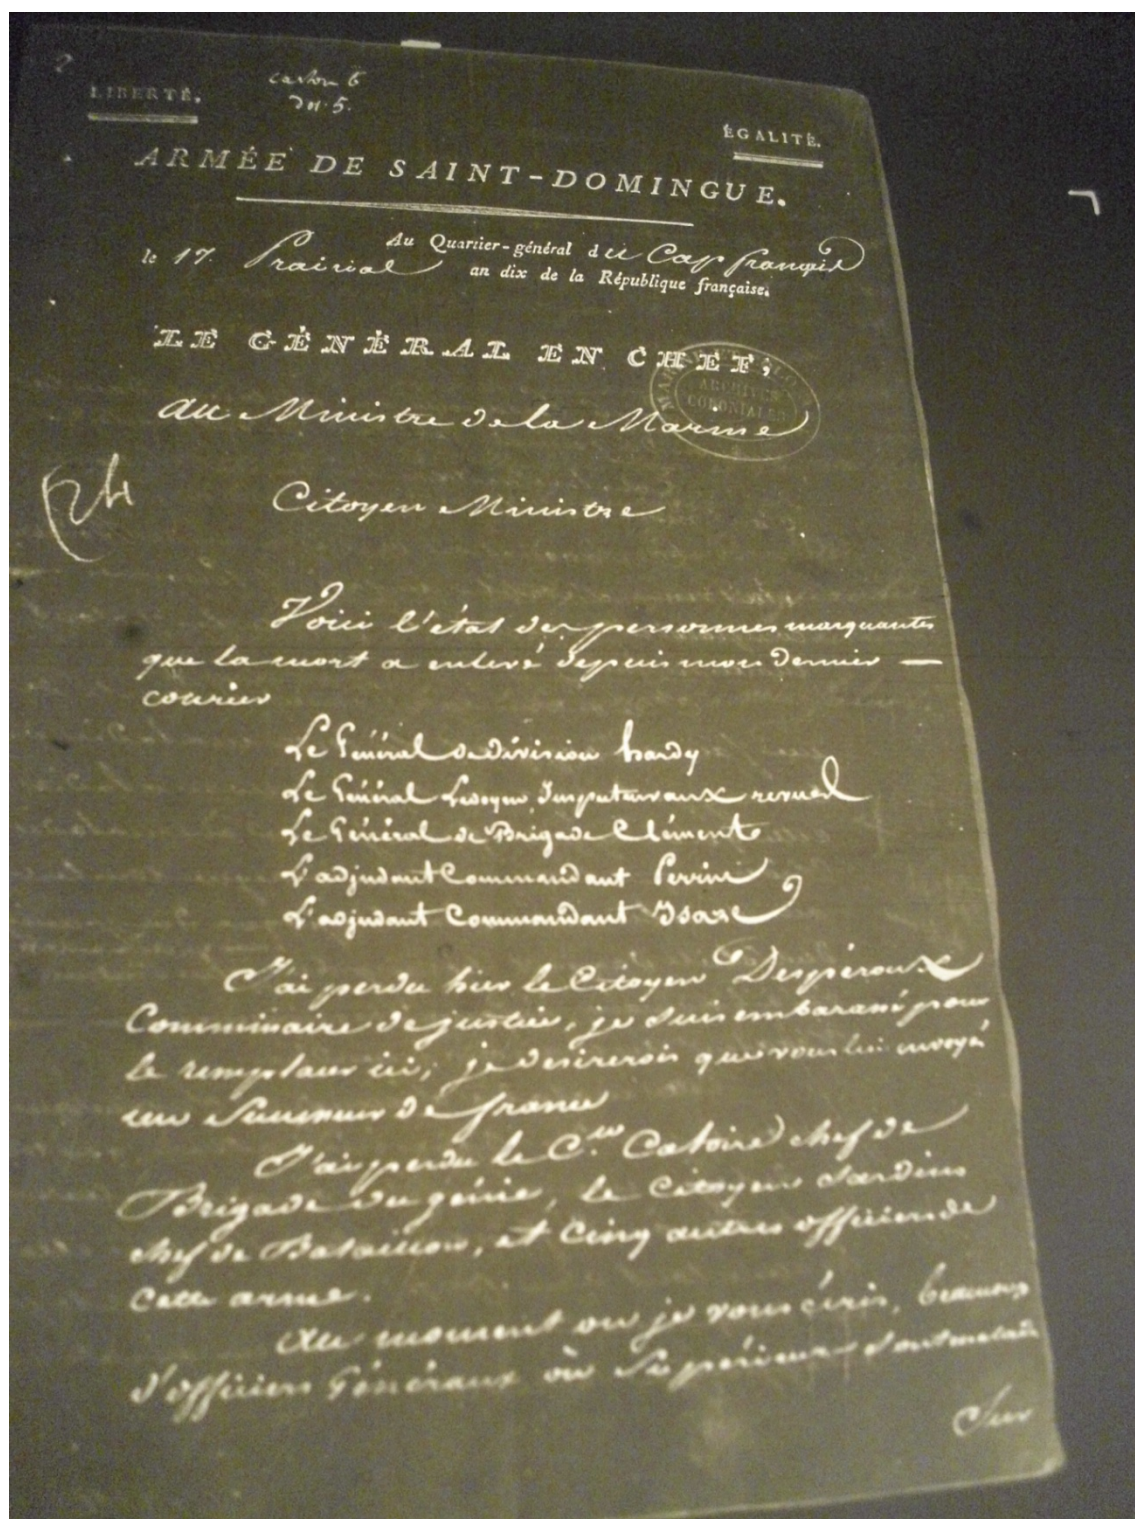 2
LIBERTÉ.
carton 6
dos. 5.
ÉGALITÉ.
ARMÉE DE SAINT-DOMINGUE.
Au Quartier-général du Cap français
le 17. Prairial an dix de la République française.
LE GÉNÉRAL EN CHEF,
ARCHIVES
COLONIALES
au Ministre de la Marine
Citoyen Ministre
Voici l'état des personnes marquantes
que la mort a enlevé depuis mon dernier —
courier
Le Général de division hardy
Le Général Ledoyen Inspecteur aux revues
Le Général de Brigade Clément
L'adjudant Commandant Perrin
L'adjudant Commandant Isare
J'ai perdu hier le Citoyen Despéroux
Commissaire de justice, je suis embarassé pour
le remplacer ici; je desirerois que vous lui envoyé
un Successeur de france
J'ai perdu le C.en Catoire chef de
Brigade du génie, le Citoyen Sardin
chef de Bataillon, et Cinq autres officiers de
Cette arme.
au moment ou je vous écris, beaucoup
d'officiers Généraux ou Supérieurs sont malade
Sur